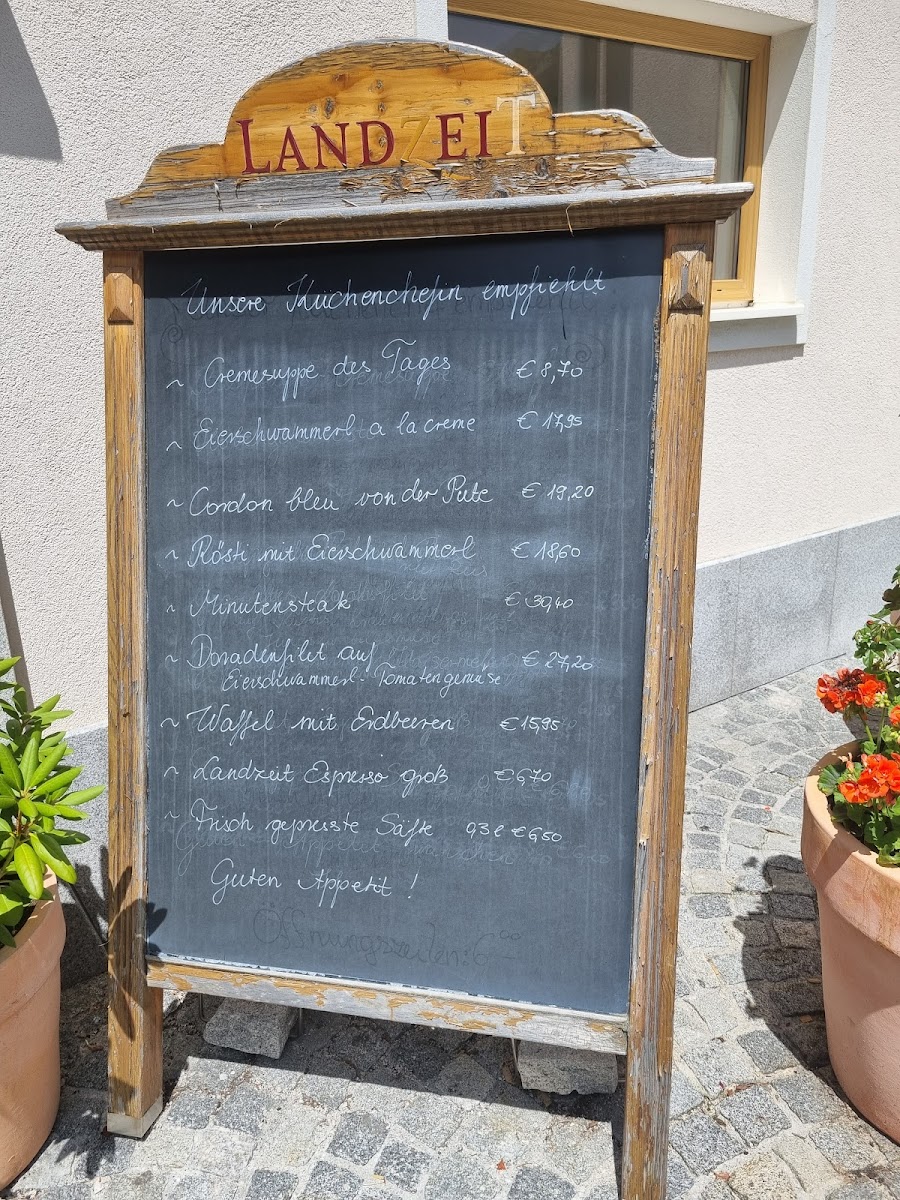 LANDZEIT
Unsere Küchenchefin empfiehlt
~ Cremesuppe des Tages € 8,70
~ Eierschwammerl a la creme € 17,95
~ Cordon bleu von der Pute € 19,20
~ Rösti mit Eierschwammerl € 18,60
~ Minutensteak € 30,40
~ Doradenfilet auf € 27,20
Eierschwammerl-Tomatengemüse
~ Waffel mit Erdbeeren € 15,95
~ Landzeit Espresso groß € 6,70
~ Frisch gepresste Säfte 0,3 l € 6,50
Guten Appetit !
Öffnungszeiten: